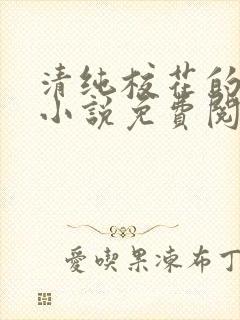 清纯校花的
小説免費閱
愛喫果凍布丁